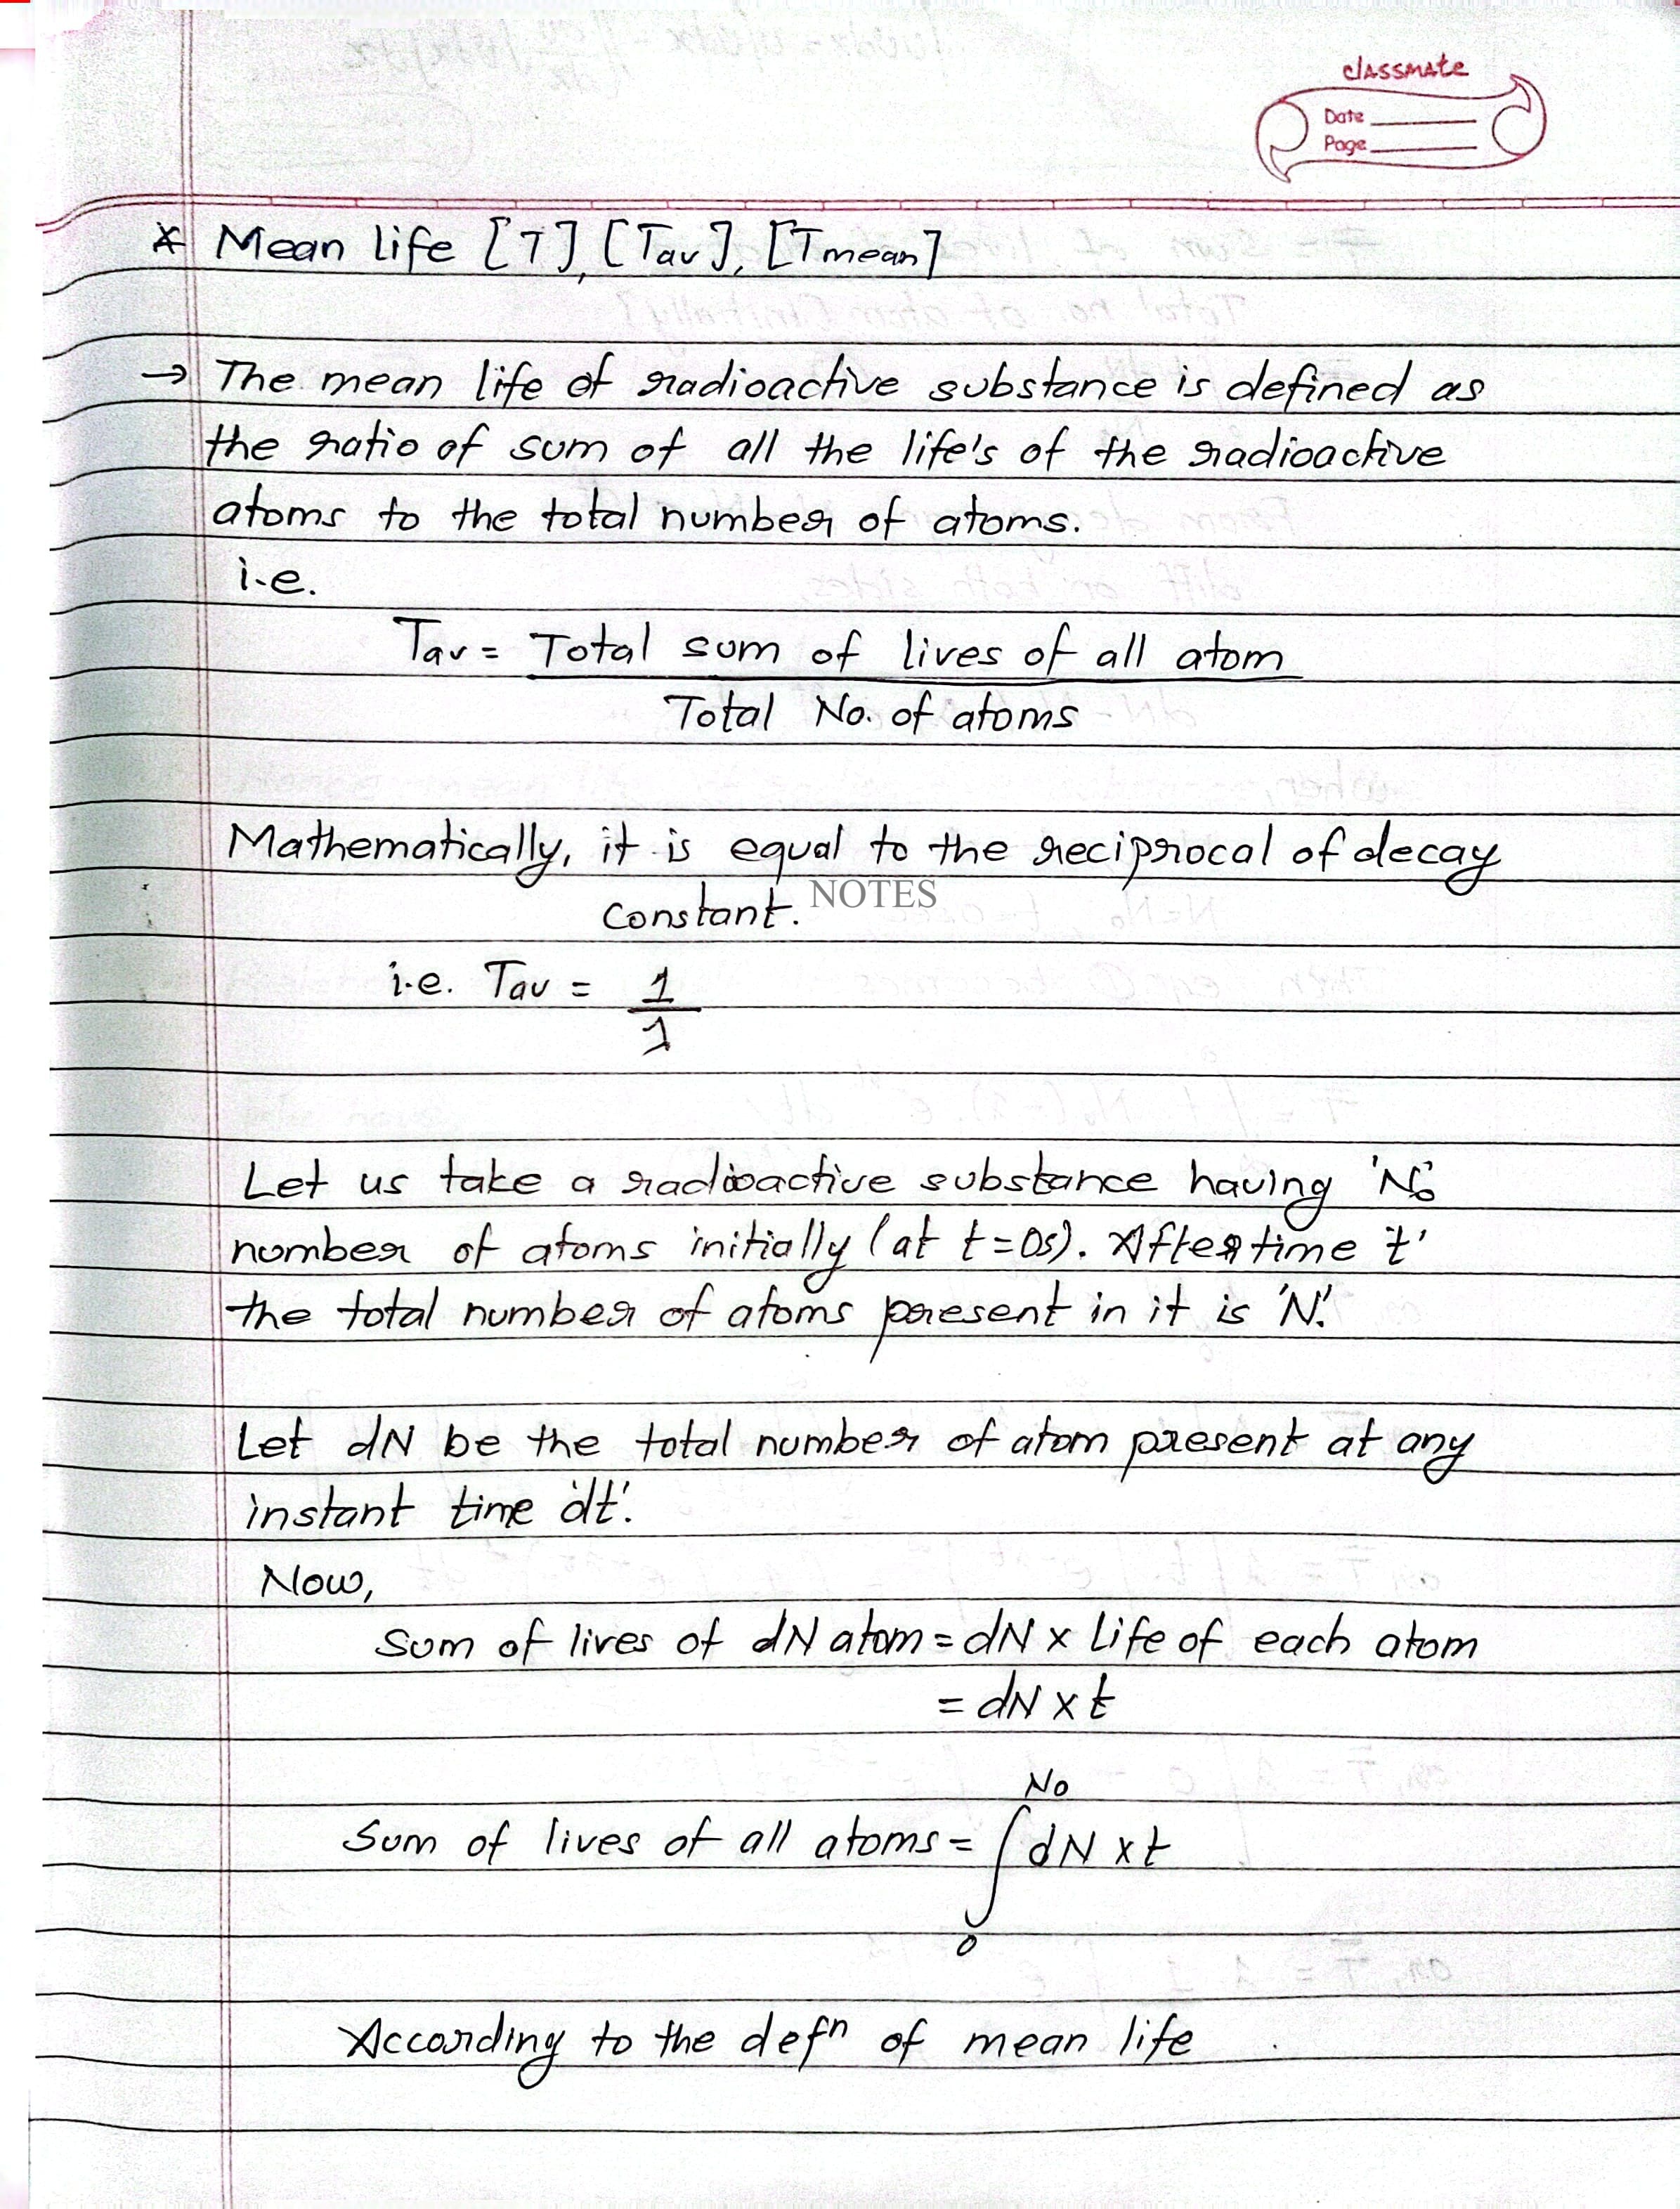 classmate
Date
Page
* Mean life [T], [Tav], [Tmean]
→ The mean life of radioactive substance is defined as
the ratio of sum of all the life's of the radioactive
atoms to the total number of atoms.
i.e.
Tav = Total sum of lives of all atom
Total No. of atoms
Mathematically, it is equal to the reciprocal of decay
constant.
NOTES
i.e. Tav = 1/λ
Let us take a radioactive substance having 'N₀'
number of atoms initially (at t=0s). After time 't'
the total number of atoms present in it is 'N'.
Let dN be the total number of atom present at any
instant time 'dt'.
Now,
Sum of lives of dN atom = dN x Life of each atom
= dN x t
N₀
Sum of lives of all atoms = ∫ dN x t
0
According to the defⁿ of mean life